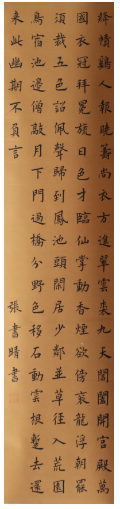 絳幘雞人報曉籌尚衣方進翠雲裘九天閶闔開宮殿萬
國衣冠拜冕旒日色才臨仙掌動香煙欲傍衮龍浮朝罷
須裁五色詔佩聲歸到鳳池頭閑居少鄰並草徑入荒園
鳥宿池邊僧敲月下門過橋分野色移石動雲根暫去還
來此幽期不負言
張書晴書